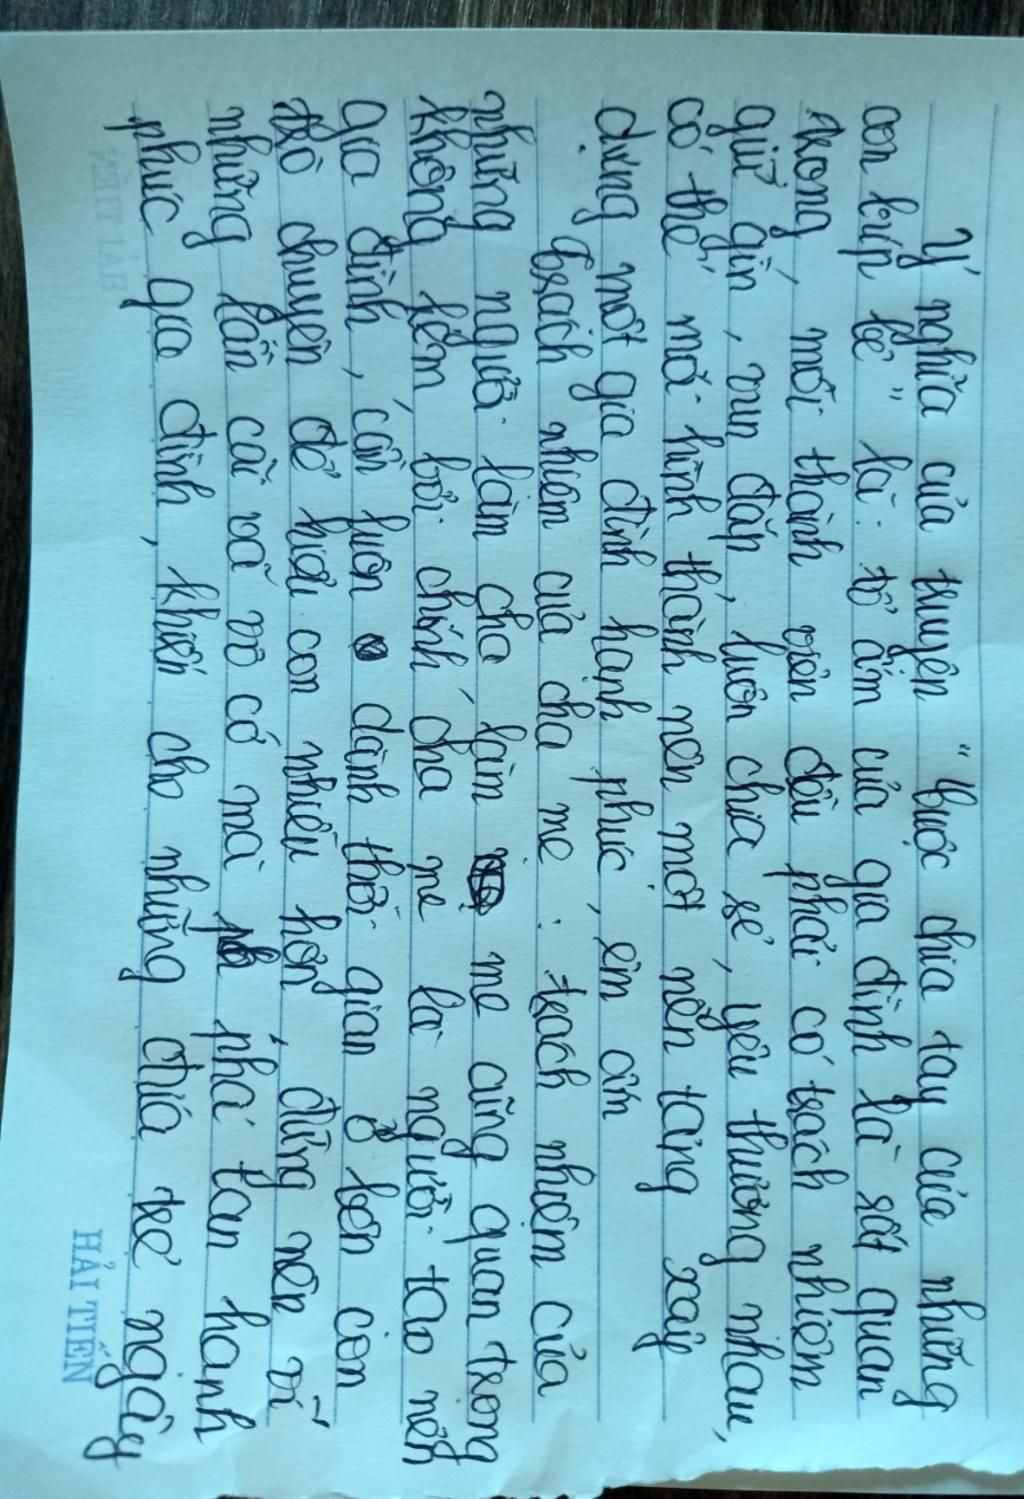 Ý nghĩa của truyện "Cuộc chia tay của những
con búp bê" là: tổ ấm của gia đình là rất quan
trọng, mỗi thành viên đều phải có trách nhiệm
giữ gìn, vun đắp, luôn chia sẻ, yêu thương nhau,
có thế mới hình thành nên một nền tảng xây
dựng một gia đình hạnh phúc, êm ấm
Trách nhiệm của cha mẹ: trách nhiệm của
những người làm cha, làm mẹ cũng quan trọng
không kém bởi chính cha mẹ là người tạo nên
gia đình, cần luôn dành thời gian ở bên con
trò chuyện để hiểu con nhiều hơn, đừng nên vì
những lần cãi vã vô cớ mà phá tan hạnh
phúc gia đình, khiến cho những đứa trẻ ngây
HẢI TIẾN